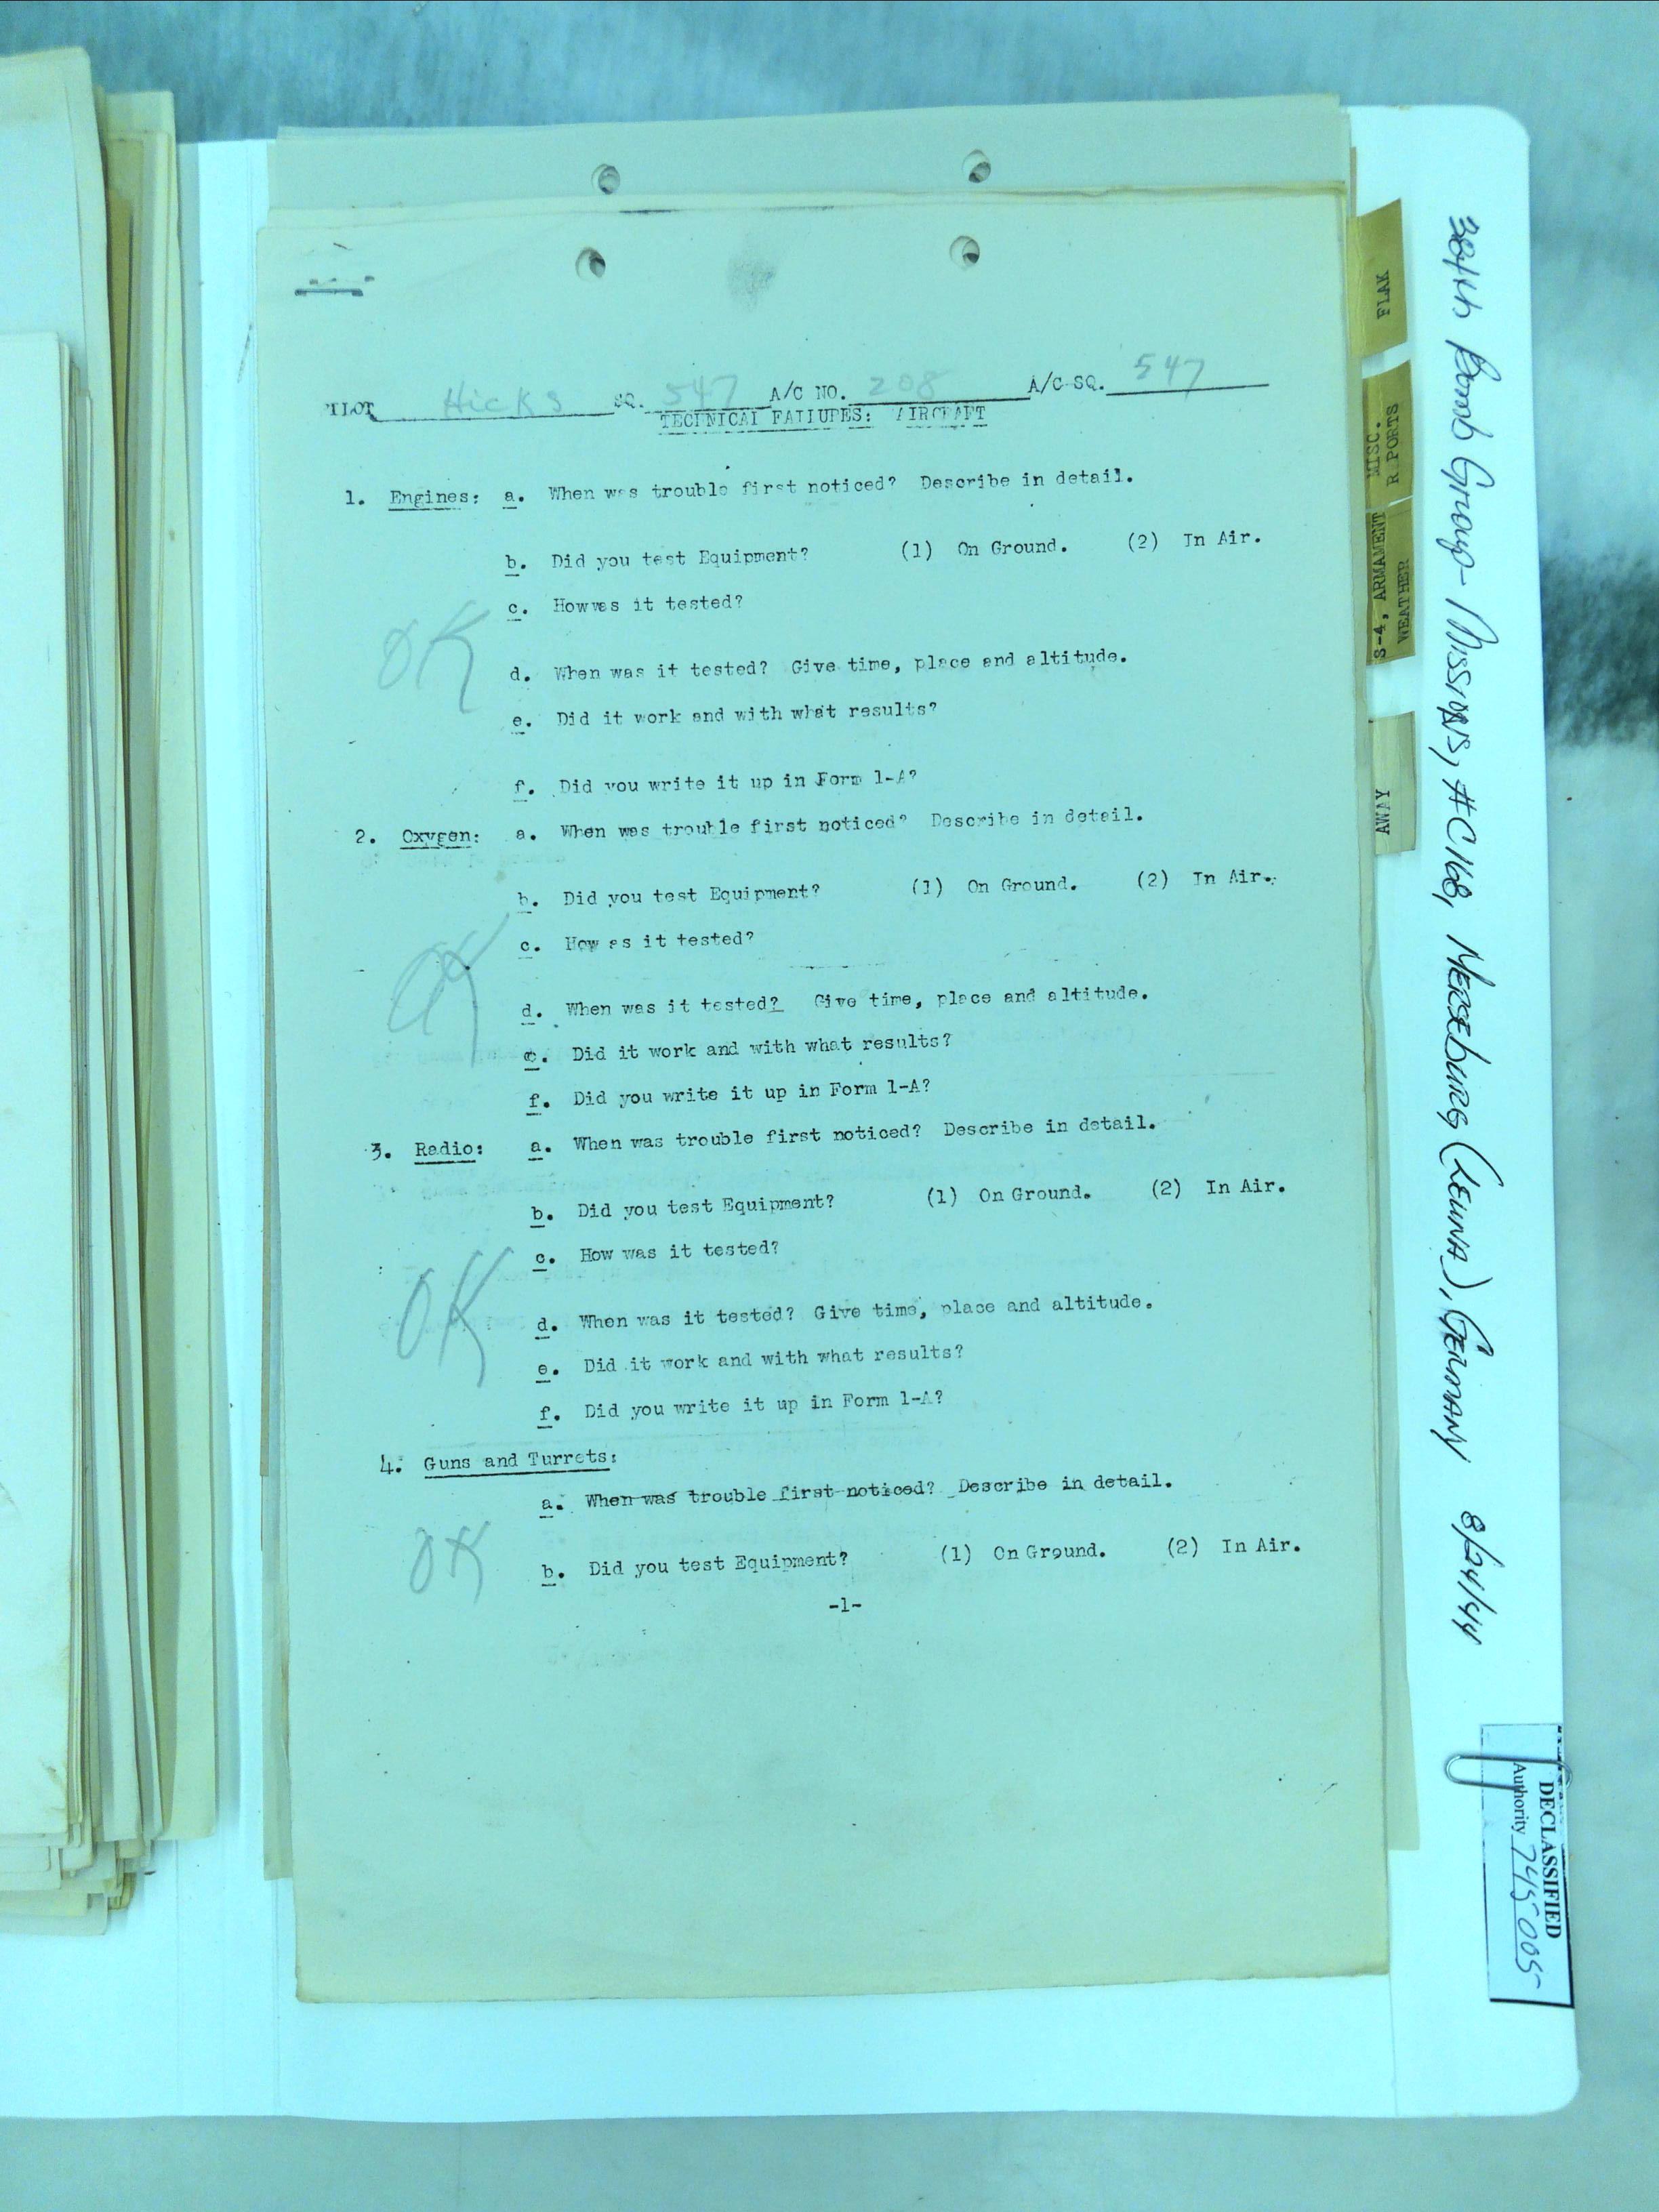 PILOT Hicks SQ. 547 A/C NO. 208 A/C SQ. 547
TECHNICAL FAILURES: AIRCRAFT
1. Engines: a. When was trouble first noticed? Describe in detail.
b. Did you test Equipment? (1) On Ground. (2) In Air.
c. How was it tested?
OK
d. When was it tested? Give time, place and altitude.
e. Did it work and with what results?
f. Did you write it up in Form 1-A?
2. Oxygen: a. When was trouble first noticed? Describe in detail.
b. Did you test Equipment? (1) On Ground. (2) In Air.
c. How as it tested?
OK
d. When was it tested? Give time, place and altitude.
e. Did it work and with what results?
f. Did you write it up in Form 1-A?
3. Radio: a. When was trouble first noticed? Describe in detail.
b. Did you test Equipment? (1) On Ground. (2) In Air.
c. How was it tested?
OK
d. When was it tested? Give time, place and altitude.
e. Did it work and with what results?
f. Did you write it up in Form 1-A?
4. Guns and Turrets:
a. When was trouble first noticed? Describe in detail.
OK
b. Did you test Equipment? (1) On Ground. (2) In Air.
-1-
FLAK
MISC.
R PORTS
S-4, ARMAMENT
WEATHER
AWAY
384th Bomb Group - Missions, #C168, Merseburg (Leuna), Germany 8/24/44
DECLASSIFIED
Authority 745005